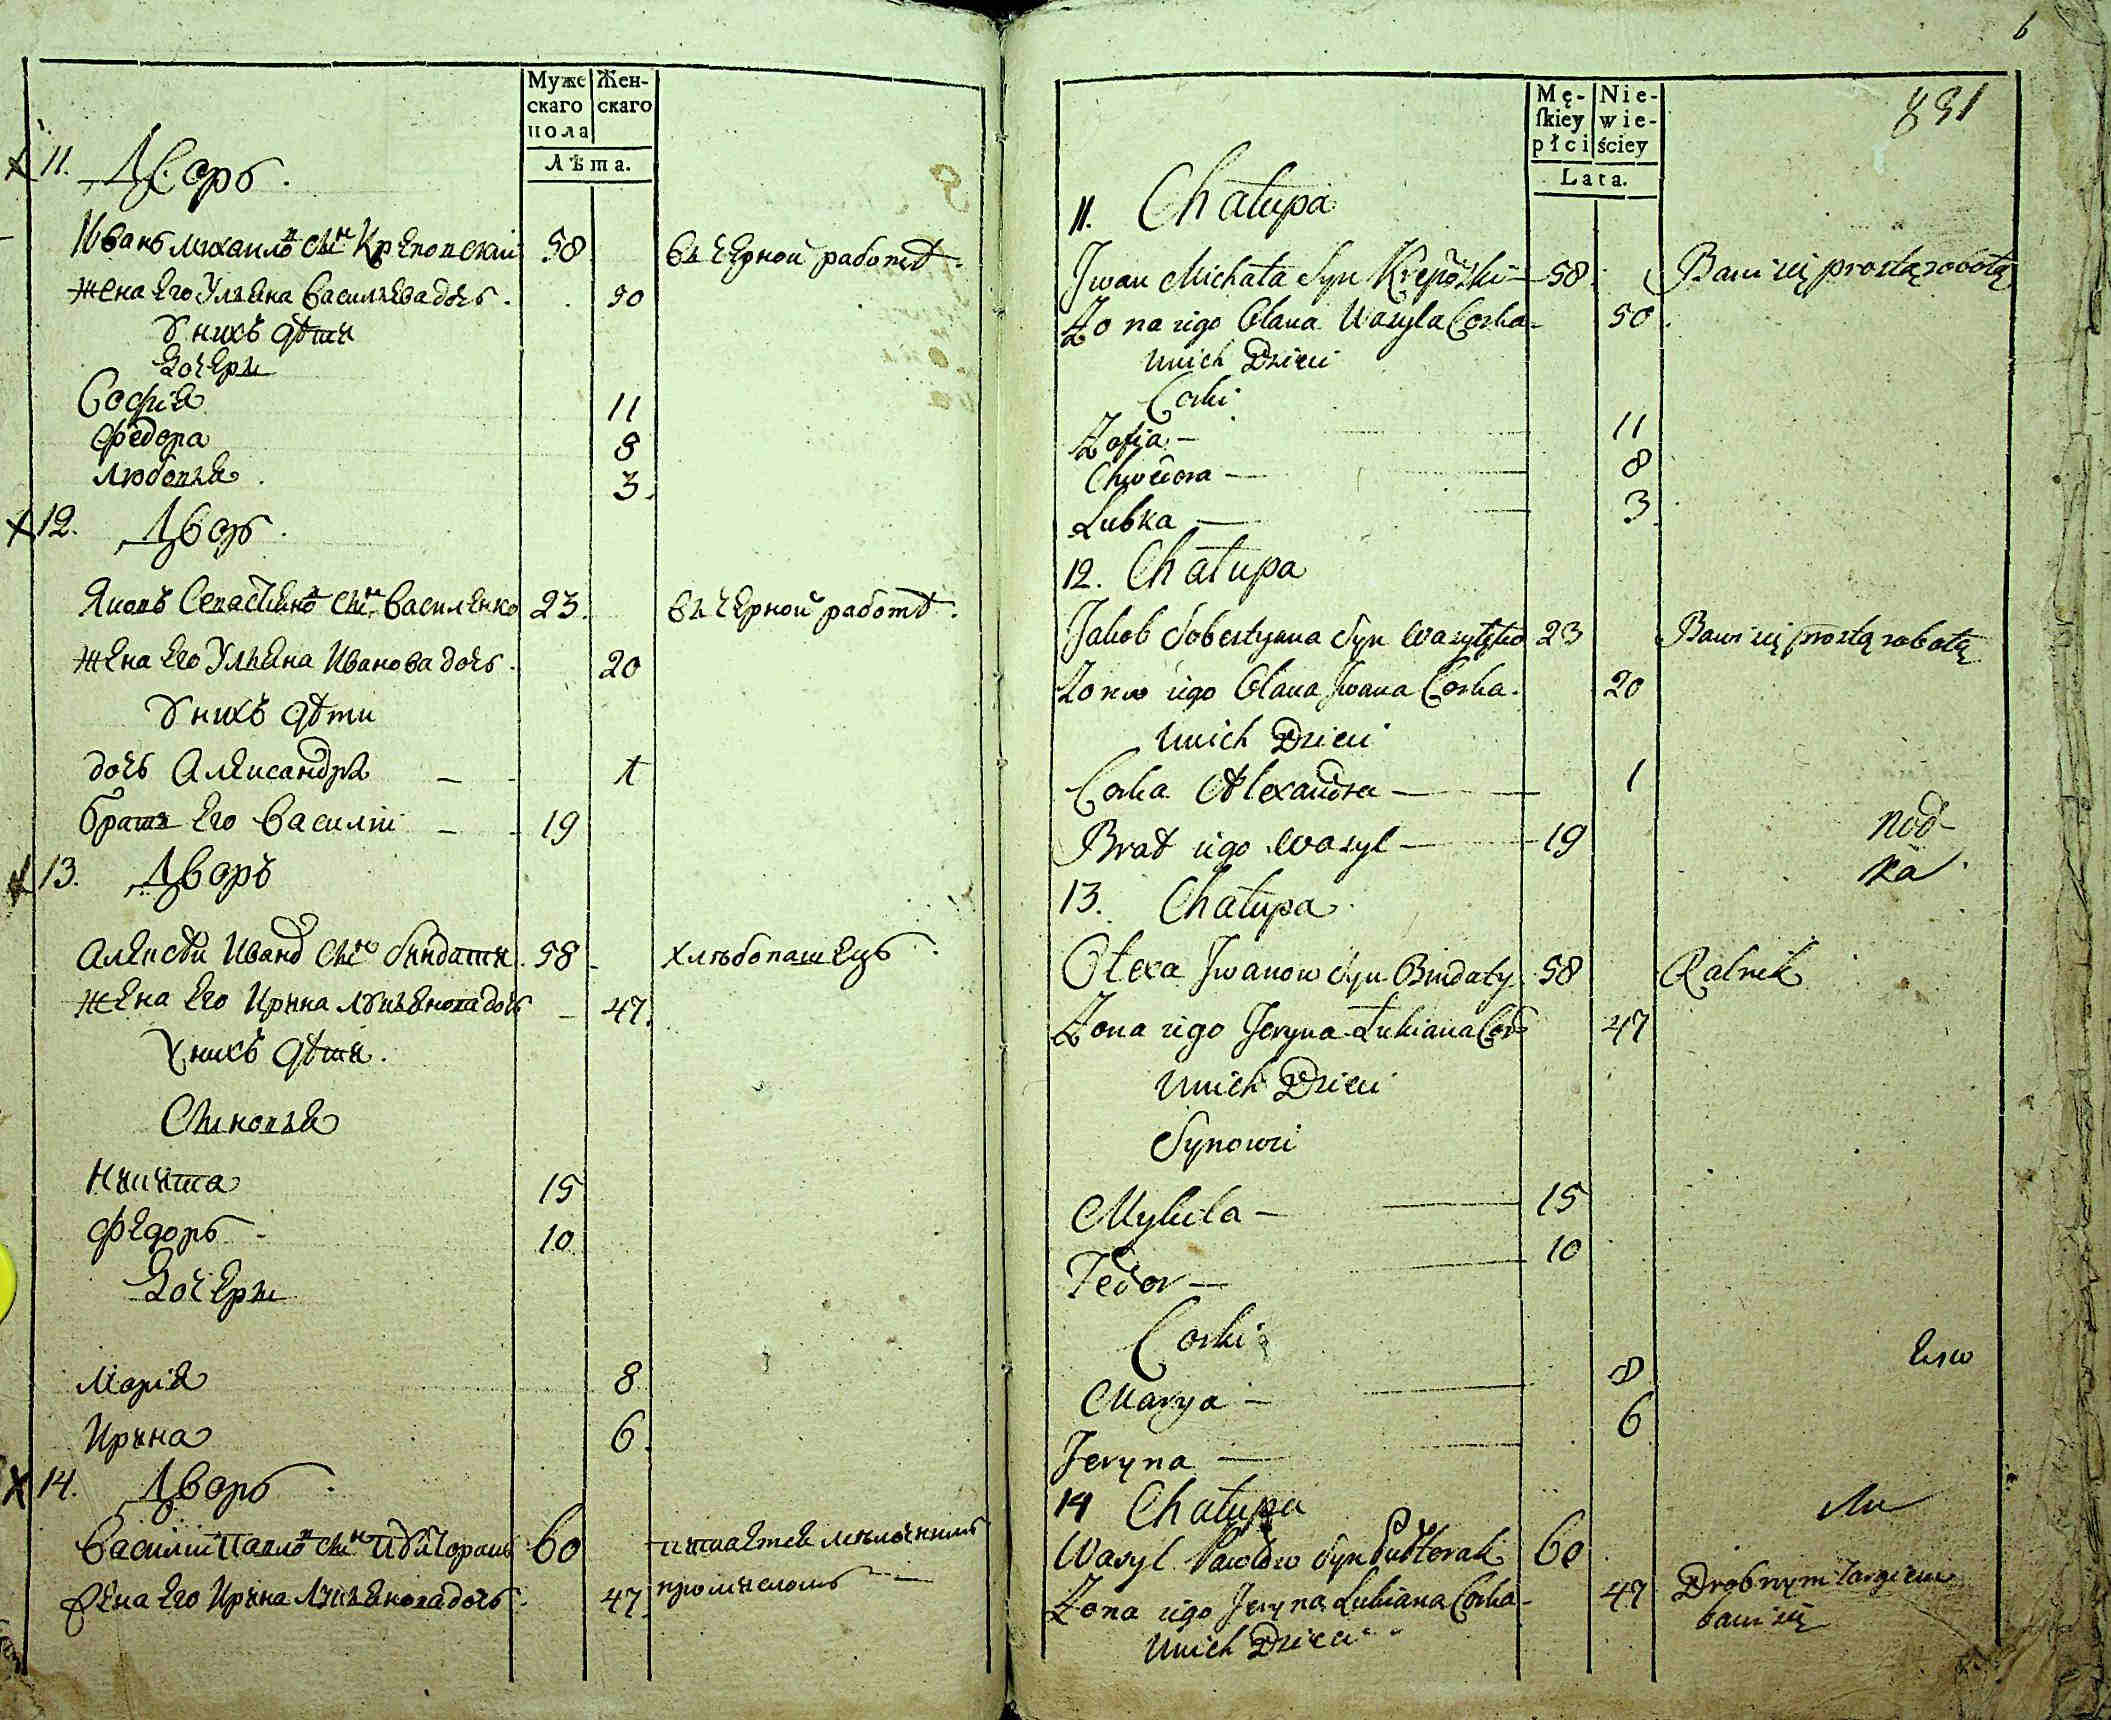 Муже Жен-
скаго скаго
пола
Лѣта.
11. Дворъ.
Иванъ михаиловъ сынъ Крепопскій 58 въ черной работѣ.
жена его Ульяна Васильева дочь. 50
У нихъ дѣти
дочери
Софія 11
Федора 8
любовья 3.
12. Дворъ.
Яковъ Севастіяновъ сынъ Василенко 23. въ черной работѣ.
жена его Ульяна Иванова дочь. 20
У нихъ дѣти
дочь Александра 1
братъ его Василій 19
13. Дворъ
Алексѣй Ивановъ сынъ Биндата 58 хлѣбопашецъ.
жена его Ирына Лукьянова дочь 47.
У нихъ дѣти.
Сыновья
Никита 15
Федоръ 10
Дочери
Марія 8
Ирына 6.
14. Дворъ.
Василій Павловъ сынъ 60 питается мѣлочнымъ
жена его Ирына Лукьянова дочь 47. промысломъ
6
831
Mę- Nie-
ſkiey wie-
płci ściey
Lata.
11. Chałupa
Jwan Michała Syn Kreposki 58 Bawi się prostą robotą
Zona iego Olana Wasyla Corka 50
unich Dzieci
Corki
Zofia 11
Chwedora 8
Lubka 3
12. Chałupa
Jakob Sobestyana Syn Wasylko 23 Bawi się prostą robotą
Zona iego Olana Jwana Corka. 20
unich Dzieci
Corka Alexandra 1
Brat iego Wasyl 19
13. Chałupa
Olexa Jwanow Syn Bindaty 58 Ralnik
Zona iego Jeryna Łukiana Cor 47
unich Dzieci
Synowie
Mykita 15
Fedor 10
Corki
Marya 8
Jeryna 6
14 Chałupa
Wasyl Pawłow Syn 60
Zona iego Jeryna Lukiana Corka 47 Drobnym targiem
bawi się
Unich Dzieci